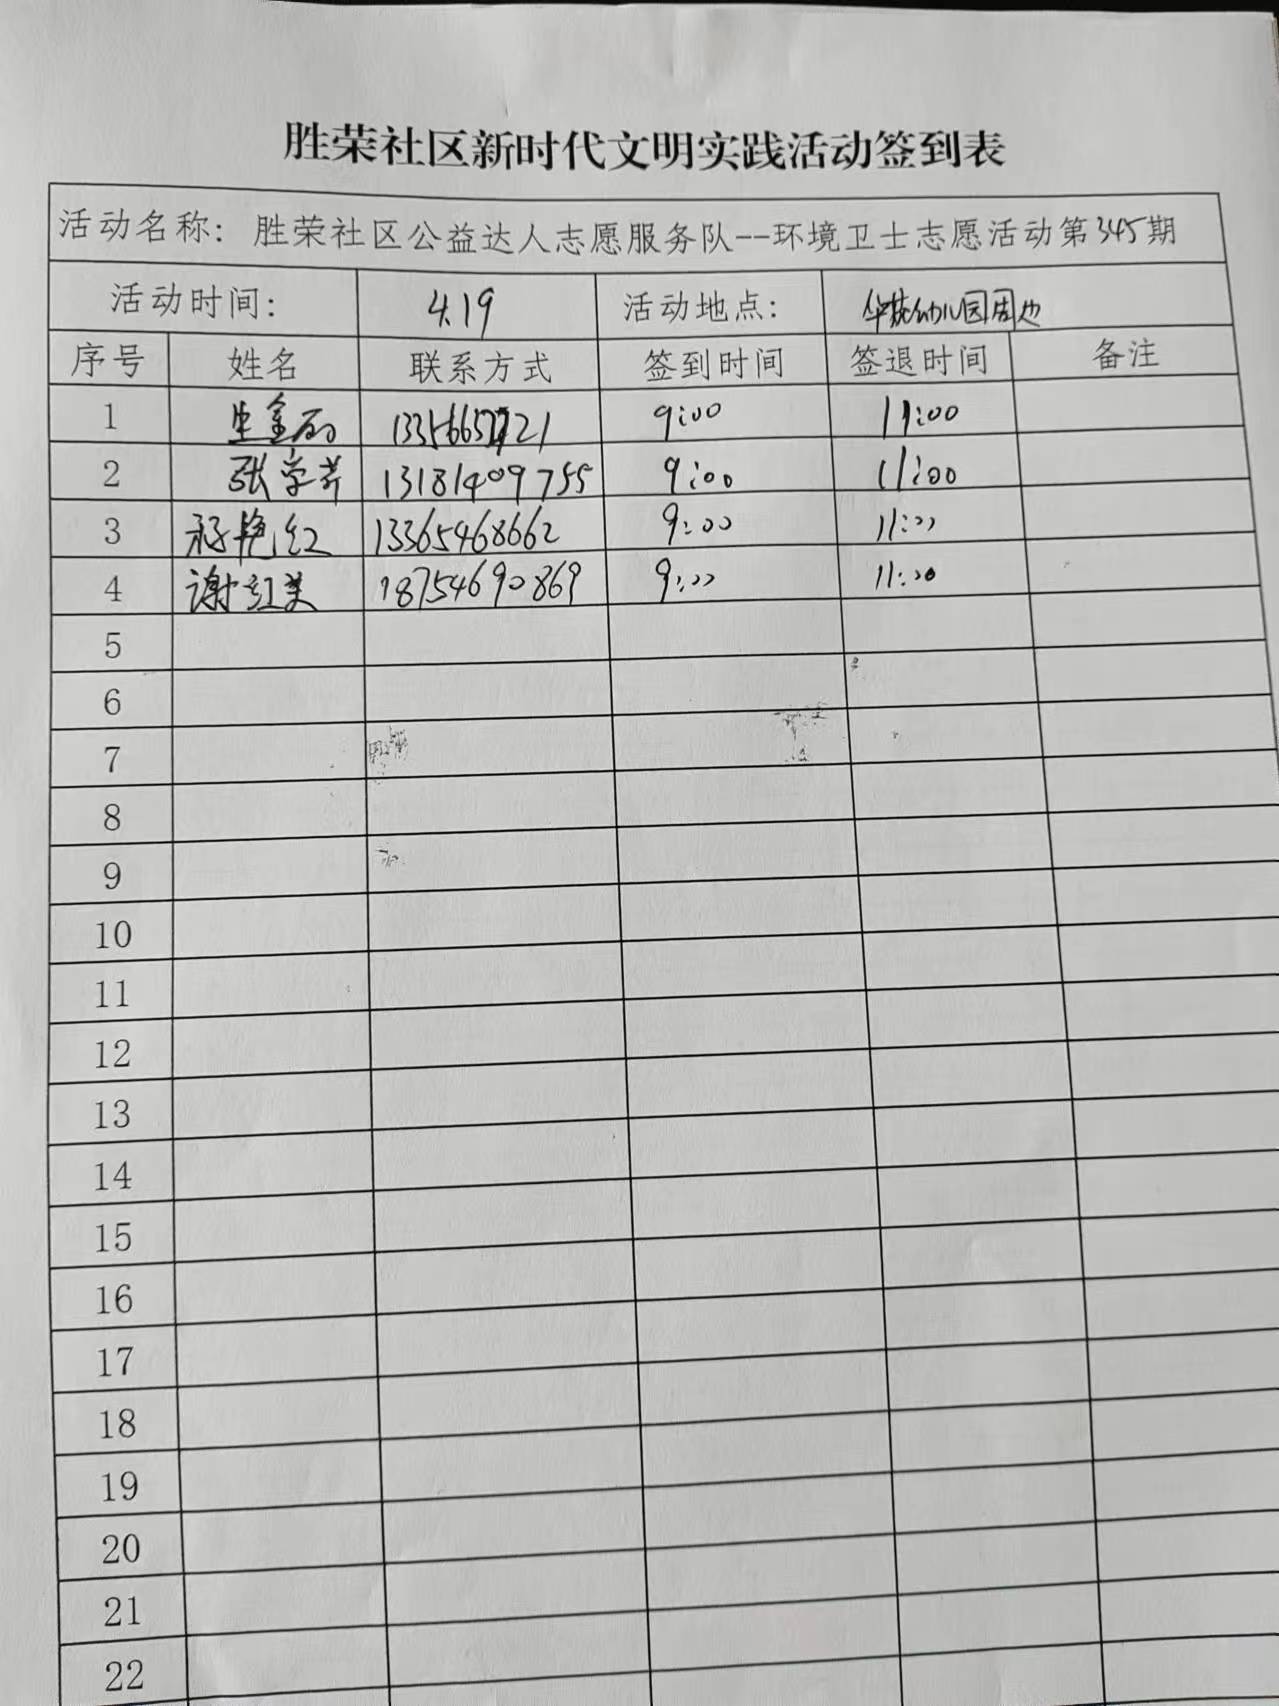 胜荣社区新时代文明实践活动签到表
活动名称：胜荣社区公益达人志愿服务队--环境卫士志愿活动第345期
活动时间： 4.19 活动地点： 幼儿园周边
序号 姓名 联系方式 签到时间 签退时间 备注
1 9:00 11:00
2 张 13181409755 9:00 11:00
3 艳红 13365468662 9:00 11:00
4 谢红美 18754690869 9:00 11:00
5
6
7
8
9
10
11
12
13
14
15
16
17
18
19
20
21
22